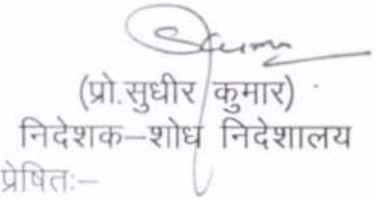 (प्रो.सुधीर कुमार)
निदेशक–शोध निदेशालय
प्रेषितः–